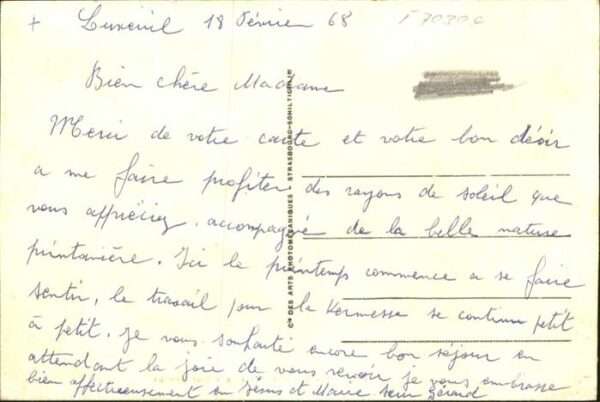 + Luxeuil 18 Février 68
F 70300
Bien chère Madame
Merci de votre carte et votre bon désir
a me faire profiter des rayons de soleil que
vous appréciez, accompagné de la belle nature
printanière. Ici le printemps commence a se faire
sentir, le travail pour la Kermesse se continu petit
à petit. je vous souhaite encore bon séjour en
attendant la joie de vous revoir je vous embrasse
bien affectueusement en Jésus et Marie Sœur Gérard
Cie DES ARTS PHOTOMÉCANIQUES - STRASBOURG-SCHILTIGHEIM